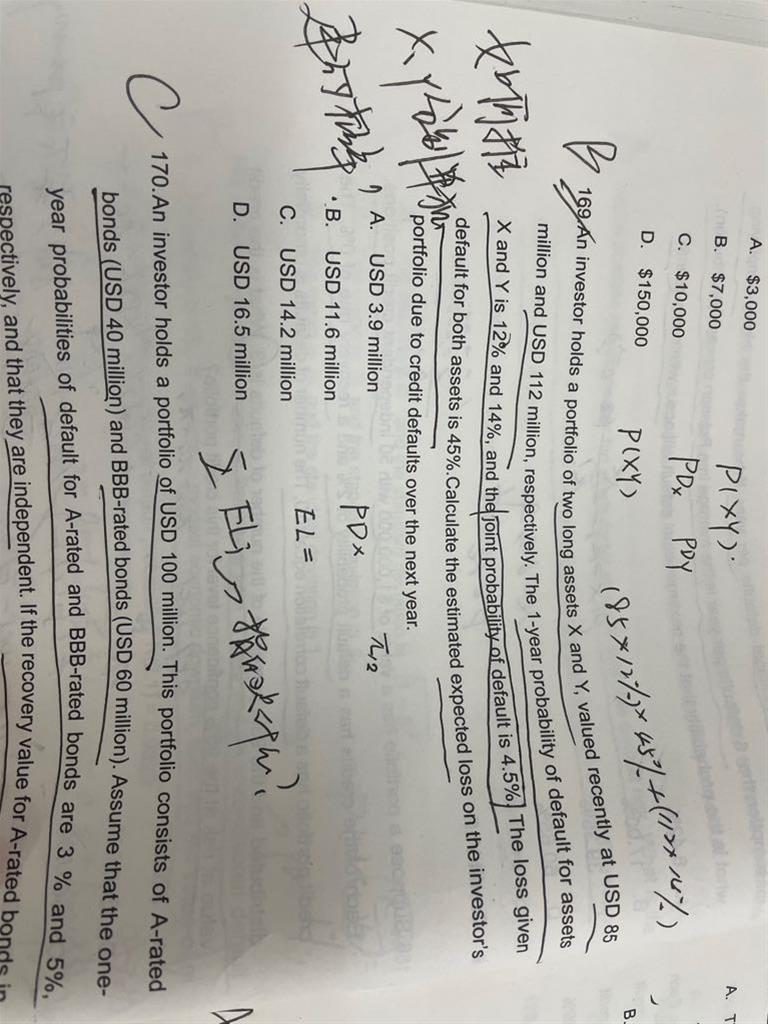 A. $3,000
B. $7,000
C. $10,000
D. $150,000
P(XY).
PDx PDy
P(XY)
(85×12%)×45%+(112×14%)
B
169.An investor holds a portfolio of two long assets X and Y, valued recently at USD 85
million and USD 112 million, respectively. The 1-year probability of default for assets
X and Y is 12% and 14%, and the joint probability of default is 4.5%. The loss given
default for both assets is 45%.Calculate the estimated expected loss on the investor's
portfolio due to credit defaults over the next year.
A. USD 3.9 million
B. USD 11.6 million
C. USD 14.2 million
D. USD 16.5 million
PDx
EL=
C
170.An investor holds a portfolio of USD 100 million. This portfolio consists of A-rated
bonds (USD 40 million) and BBB-rated bonds (USD 60 million). Assume that the one-
year probabilities of default for A-rated and BBB-rated bonds are 3 % and 5%,
respectively, and that they are independent. If the recovery value for A-rated bonds in
A. T
B.